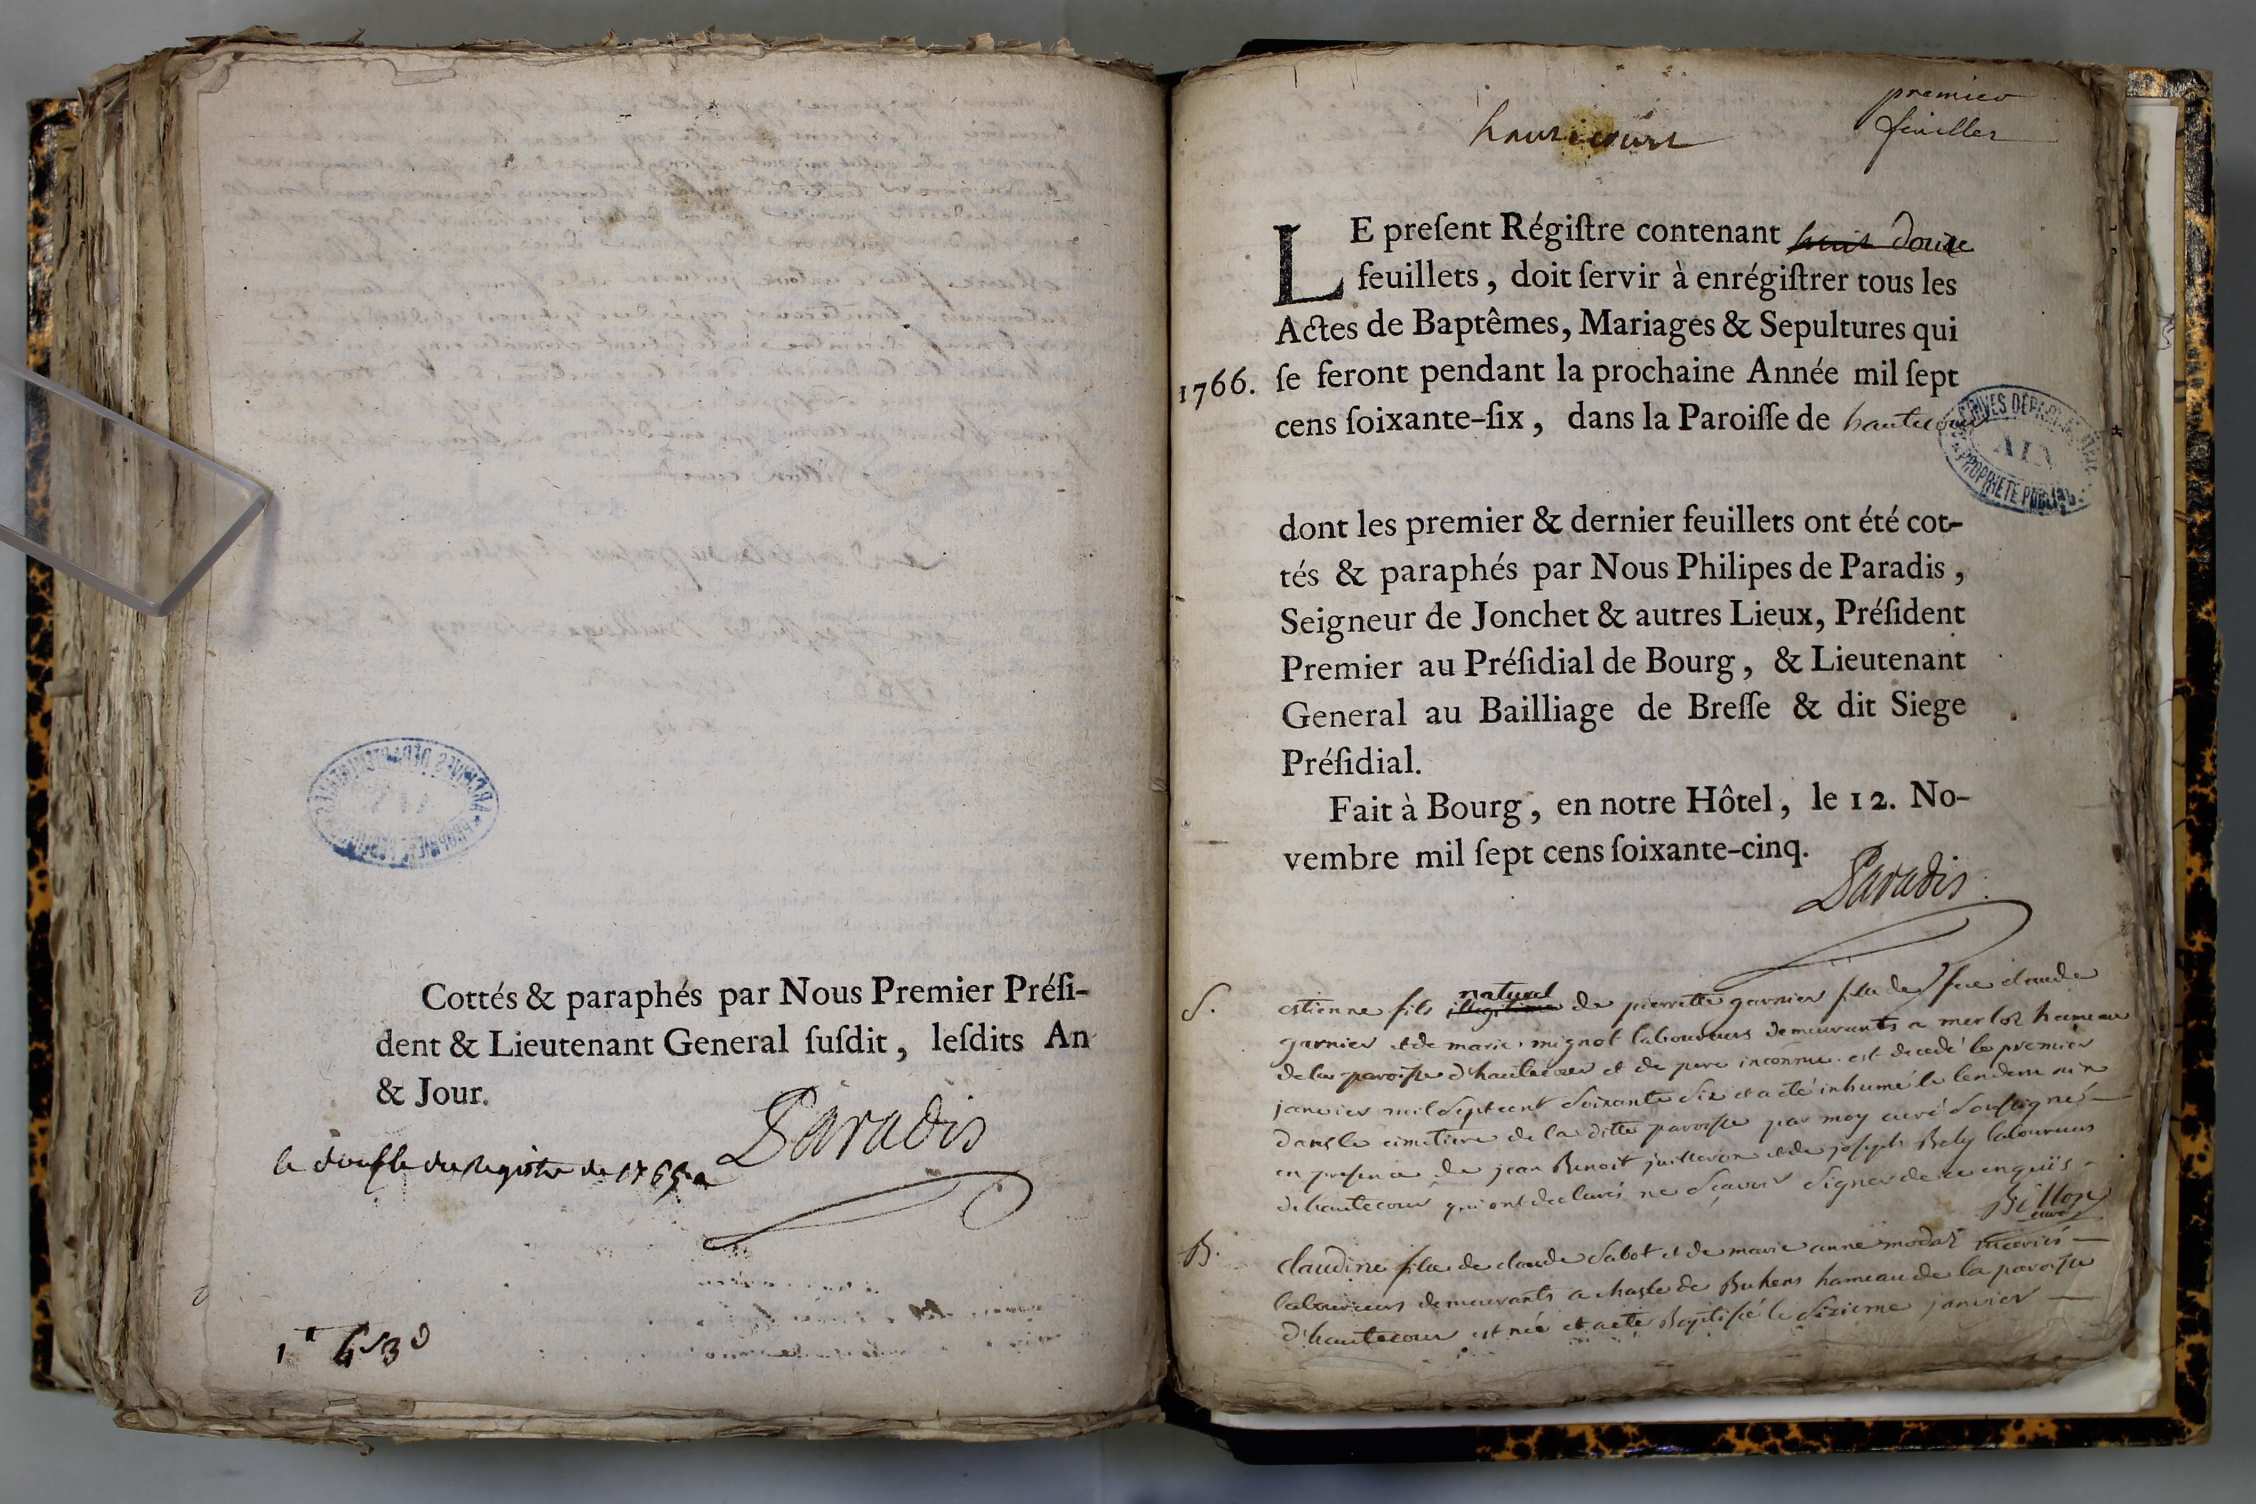 Cottés & paraphés par Nous Premier Prési-
dent & Lieutenant General susdit, lesdits An
& Jour.
Paradis
le double du Registre de 1765
hautecourt
premier
feuillet
LE present Régistre contenant huit douze
feuillets, doit servir à enrégistrer tous les
Actes de Baptêmes, Mariages & Sepultures qui
1766. se feront pendant la prochaine Année mil sept
cens soixante-six, dans la Paroisse de hautecour
ARCHIVES DEPARTEMENTALES
AIN
PROPRIETE PUBLIQUE
dont les premier & dernier feuillets ont été cot-
tés & paraphés par Nous Philipes de Paradis,
Seigneur de Jonchet & autres Lieux, Président
Premier au Présidial de Bourg, & Lieutenant
General au Bailliage de Bresse & dit Siege
Présidial.
Fait à Bourg, en notre Hôtel, le 12. No-
vembre mil sept cens soixante-cinq.
Paradis
S. estienne fils illegitime naturel de pierrette garnier fille de feu claude
garnier et de marie mignot laboureurs demeurants a merloz hameau
de la paroisse d'hautecour et de pere inconnu est decedé le premier
janvier mil sept cent soixante six et a eté inhumé le lendemain
dans le cimetiere de la ditte paroisse par moy curé soussigné
en presence de jean Benoit juilleron et de joseph Bely laboureurs
d'hautecour qui ont declarés ne sçavoir signer de ce enquis
Billon
curé
B. claudine fille de claude sabot et de marie anne modaz mariés
laboureurs demeurants a chasle de Buhens hameau de la paroisse
d'hautecour est née et a eté Baptisée le sizieme janvier